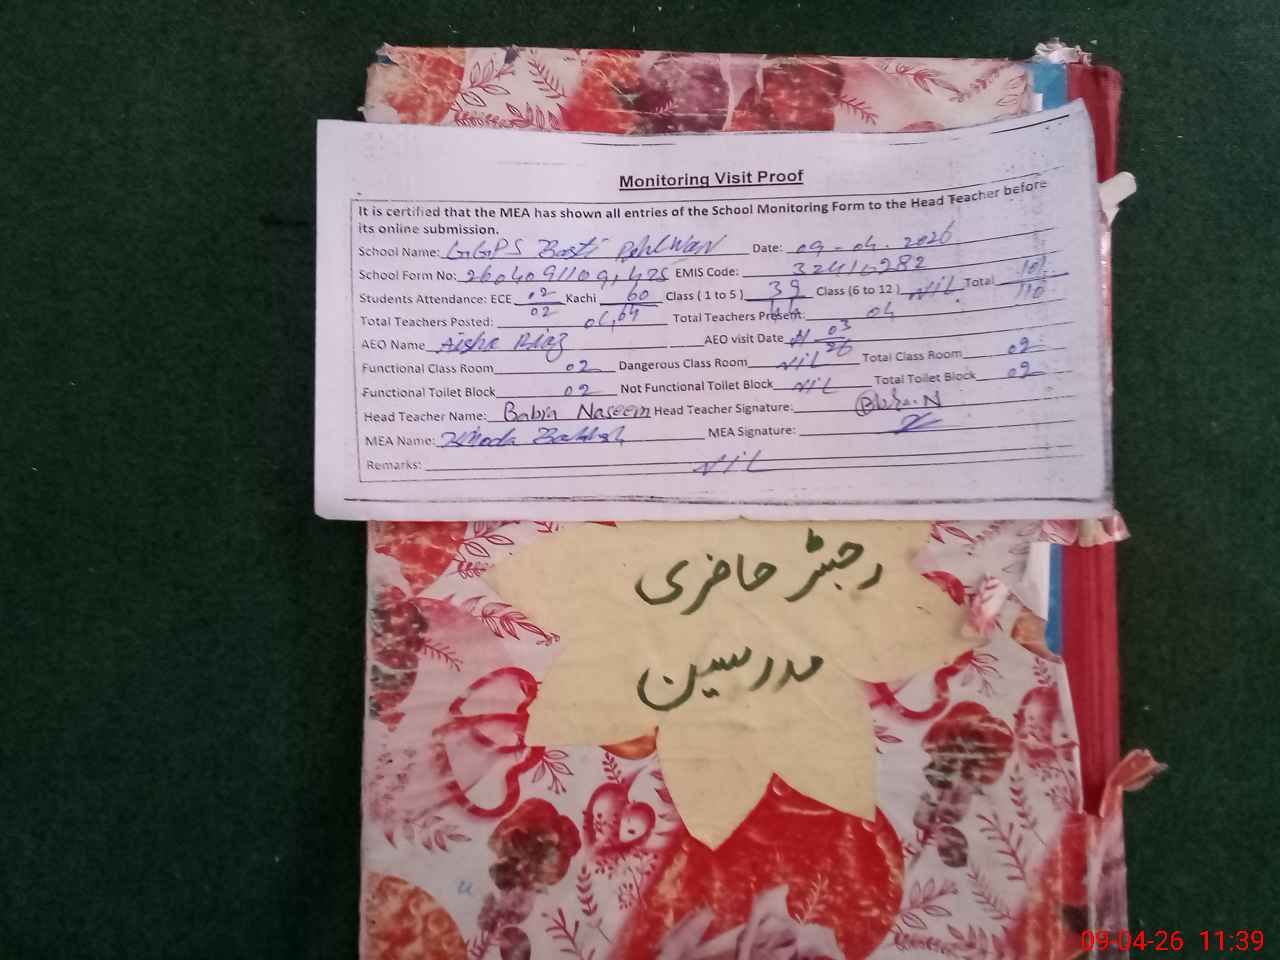 Monitoring Visit Proof
It is certified that the MEA has shown all entries of the School Monitoring Form to the Head Teacher before
its online submission.
School Name: G.GPS Basti Date: 09-04-2026
School Form No: EMIS Code:
Students Attendance: ECE 02/02 Kachi 60/64 Class ( 1 to 5 ) 39/44 Class (6 to 12 ) Nil Total 101/110
Total Teachers Posted: 04 Total Teachers Present: 04
AEO Name Aisha Riaz AEO visit Date
Functional Class Room 02 Dangerous Class Room Nil Total Class Room 02
Functional Toilet Block 02 Not Functional Toilet Block Nil Total Toilet Block 02
Head Teacher Name: Babra Naseem Head Teacher Signature:
MEA Name: MEA Signature:
Remarks: Nil
رجسٹر حاضری
مدرسین
09-04-26 11:39